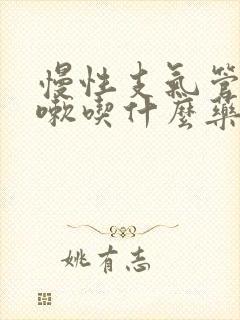 慢性支氣管
嗽喫什麼藥
姚有志